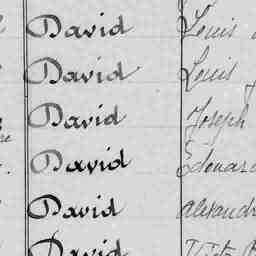 David Louis
David Louis
David Joseph
David Edouard
David Alexandr
David Victo